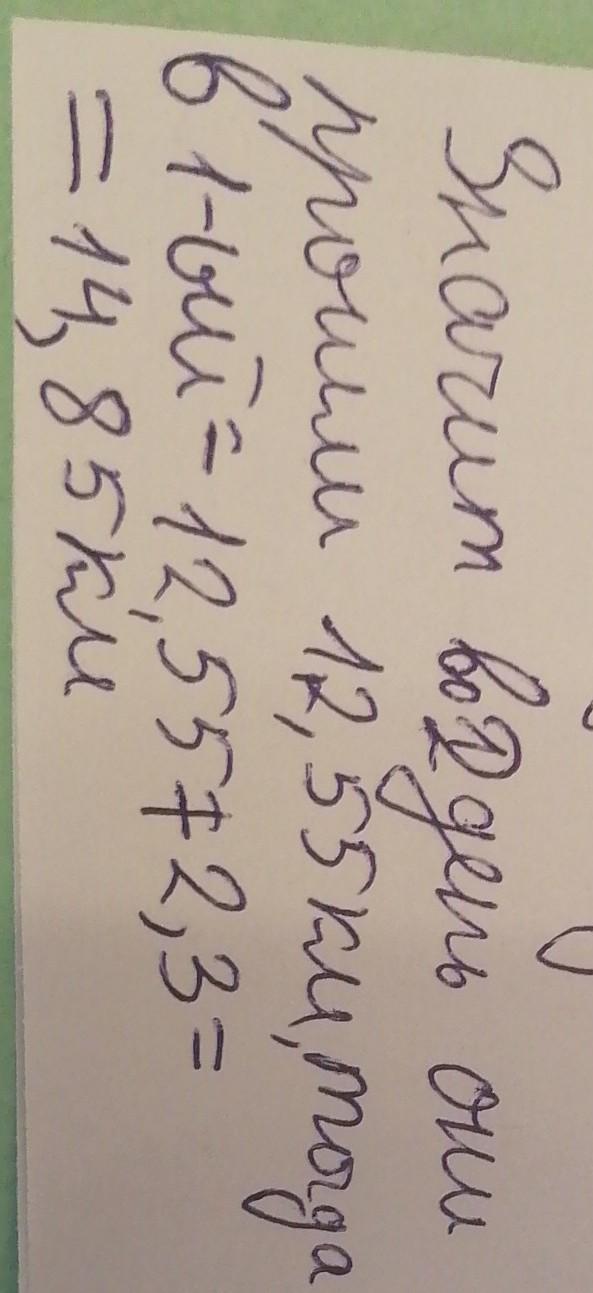 Значит во 2 день они
прошли 12,55 км, тогда
в 1-ый = 12,55 + 2,3 =
= 14,85 км